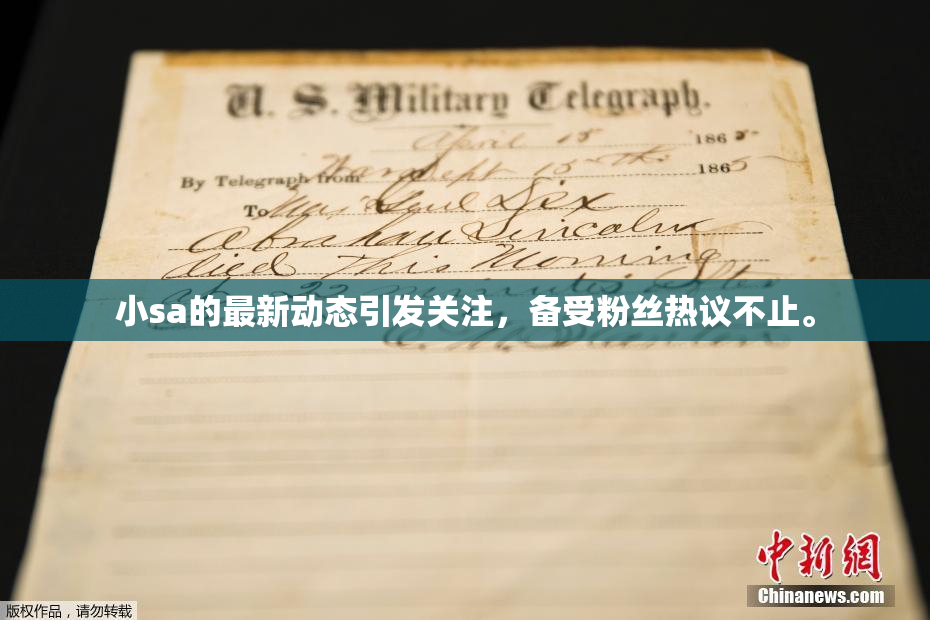 U. S. Military Telegraph.
April 15 1865
By Telegraph from War Dept 15th 1865
To Maj Genl Dix
Abraham Lincoln
died This Morning
22 minutes after
小sa的最新动态引发关注，备受粉丝热议不止。
中新网
Chinanews.com
版权作品，请勿转载